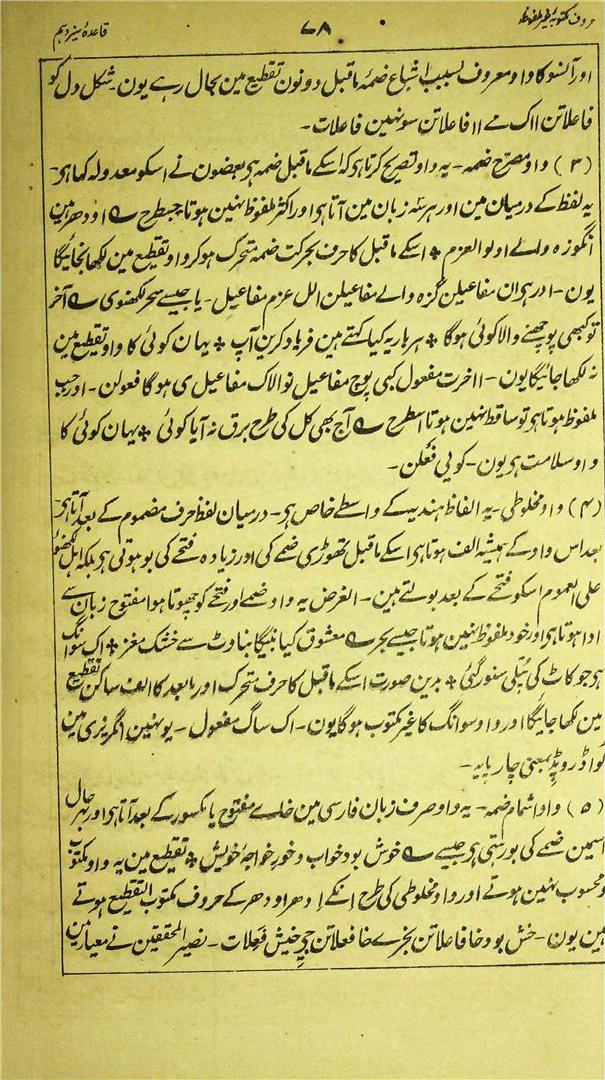 حروف مکتوبۂ غیر ملفوظہ ۷۸ قاعدۂ سیزدہم
اور آنسو کا واو معروف بسبب اشباع ضمۂ ماقبل دونون تقطیع مین بحال رہے یون۔ شکل دل کو
فاعلاتن ااک مے اا فاعلاتن سو نہین فاعلات۔
(۳) واو مصرّح ضمہ۔ یہ واو تصریح کرتا ہی کہ اسکے ماقبل ضمہ ہی بعضون نے اسکو معدولہ کہا ہی۔
یہ لفظ کے درمیان مین اور ہر سہ زبان مین آتا ہی اور اکثر ملفوظ نہین ہوتا جسطرح ے اودھر ہین
انگوزہ والے اولوالعزم ٭ اسکے ماقبل کا حرف بحرکت ضمہ متحرک ہو کر واو تقطیع مین لکھا نجائیگا
یون۔ ادر ہران مفاعیلن گزہ والے مفاعیلن الل عزم مفاعیل۔ یا جیسے سحر لکھنوی ے آخر
تو کبھی پوچھنے والا کوئی ہوگا ٭ ہر بار یہ کیا کہتے ہین فریاد کرین آپ ٭ یہان کوئی کا واو تقطیع مین
نہ لکھا جائیگا یون۔ ااخرت مفعول کبی پوچ مفاعیل نوالاک مفاعیل ی ہوگا فعولن۔ اور جب
ملفوظ ہوتا ہی تو ساقط نہین ہوتا اسطرح ے آج بھی کل کی طرح برق نہ آیا کوئی ٭ یہان کوئی کا
واو سلامت ہی یون۔ کویی فعلن۔
(۴) واو مخلوطی۔ یہ الفاظ ہندیہ کے واسطے خاص ہی۔ درمیان لفظ حرف مضموم کے بعد آتا ہی۔
بعد اس واو کے ہمیشہ الف ہوتا ہی اسکے ماقبل تھوڑی ضمے کی اور زیادہ فتحے کی بو ہوتی ہی بلکہ اہل لکھنؤ
علی العموم اسکو فتحے کے بعد بولتے ہین۔ الغرض یہ واو ضمے اور فتحے کو چھوتا ہوا مفتوح زبان سے
ادا ہوتا ہی اور خود ملفوظ نہین ہوتا جیسے بحر ے معشوق کیا بنیگا بناوٹ سے خشک مغز ٭ اک سوانگ
ہی جو کاٹ کی پتلی سنور گئی ٭ بدین صورت اسکے ماقبل کا حرف متحرک اور مابعد کا الف ساکن تقطیع
مین لکھا جائیگا اور واو سوانگ کا غیر مکتوب ہوگا یون۔ اک ساگ مفعول۔ یوہین انگریزی مین
کواڈروپڈ بمعنی چارپایہ۔
(۵) واو اشمام ضمہ۔ یہ واو صرف زبان فارسی مین خاے مفتوح یا مکسور کے بعد آتا ہی اور بہر حال
اسمین ضمے کی بو رہتی ہی جیسے ے خوش بود خواب و خور خواجۂ خویش ٭ تقطیع مین یہ واو مکتوب
و محسوب نہین ہوتے اور واو مخلوطی کی طرح انکے اِدھر اودھر کے حروف مکتوب التقطیع ہوتے
ہین یون۔ خش بود خا فاعلاتن بخرے خا فعلاتن جیِ خیش فعلات۔ نصیر المحققین نے معیار مین